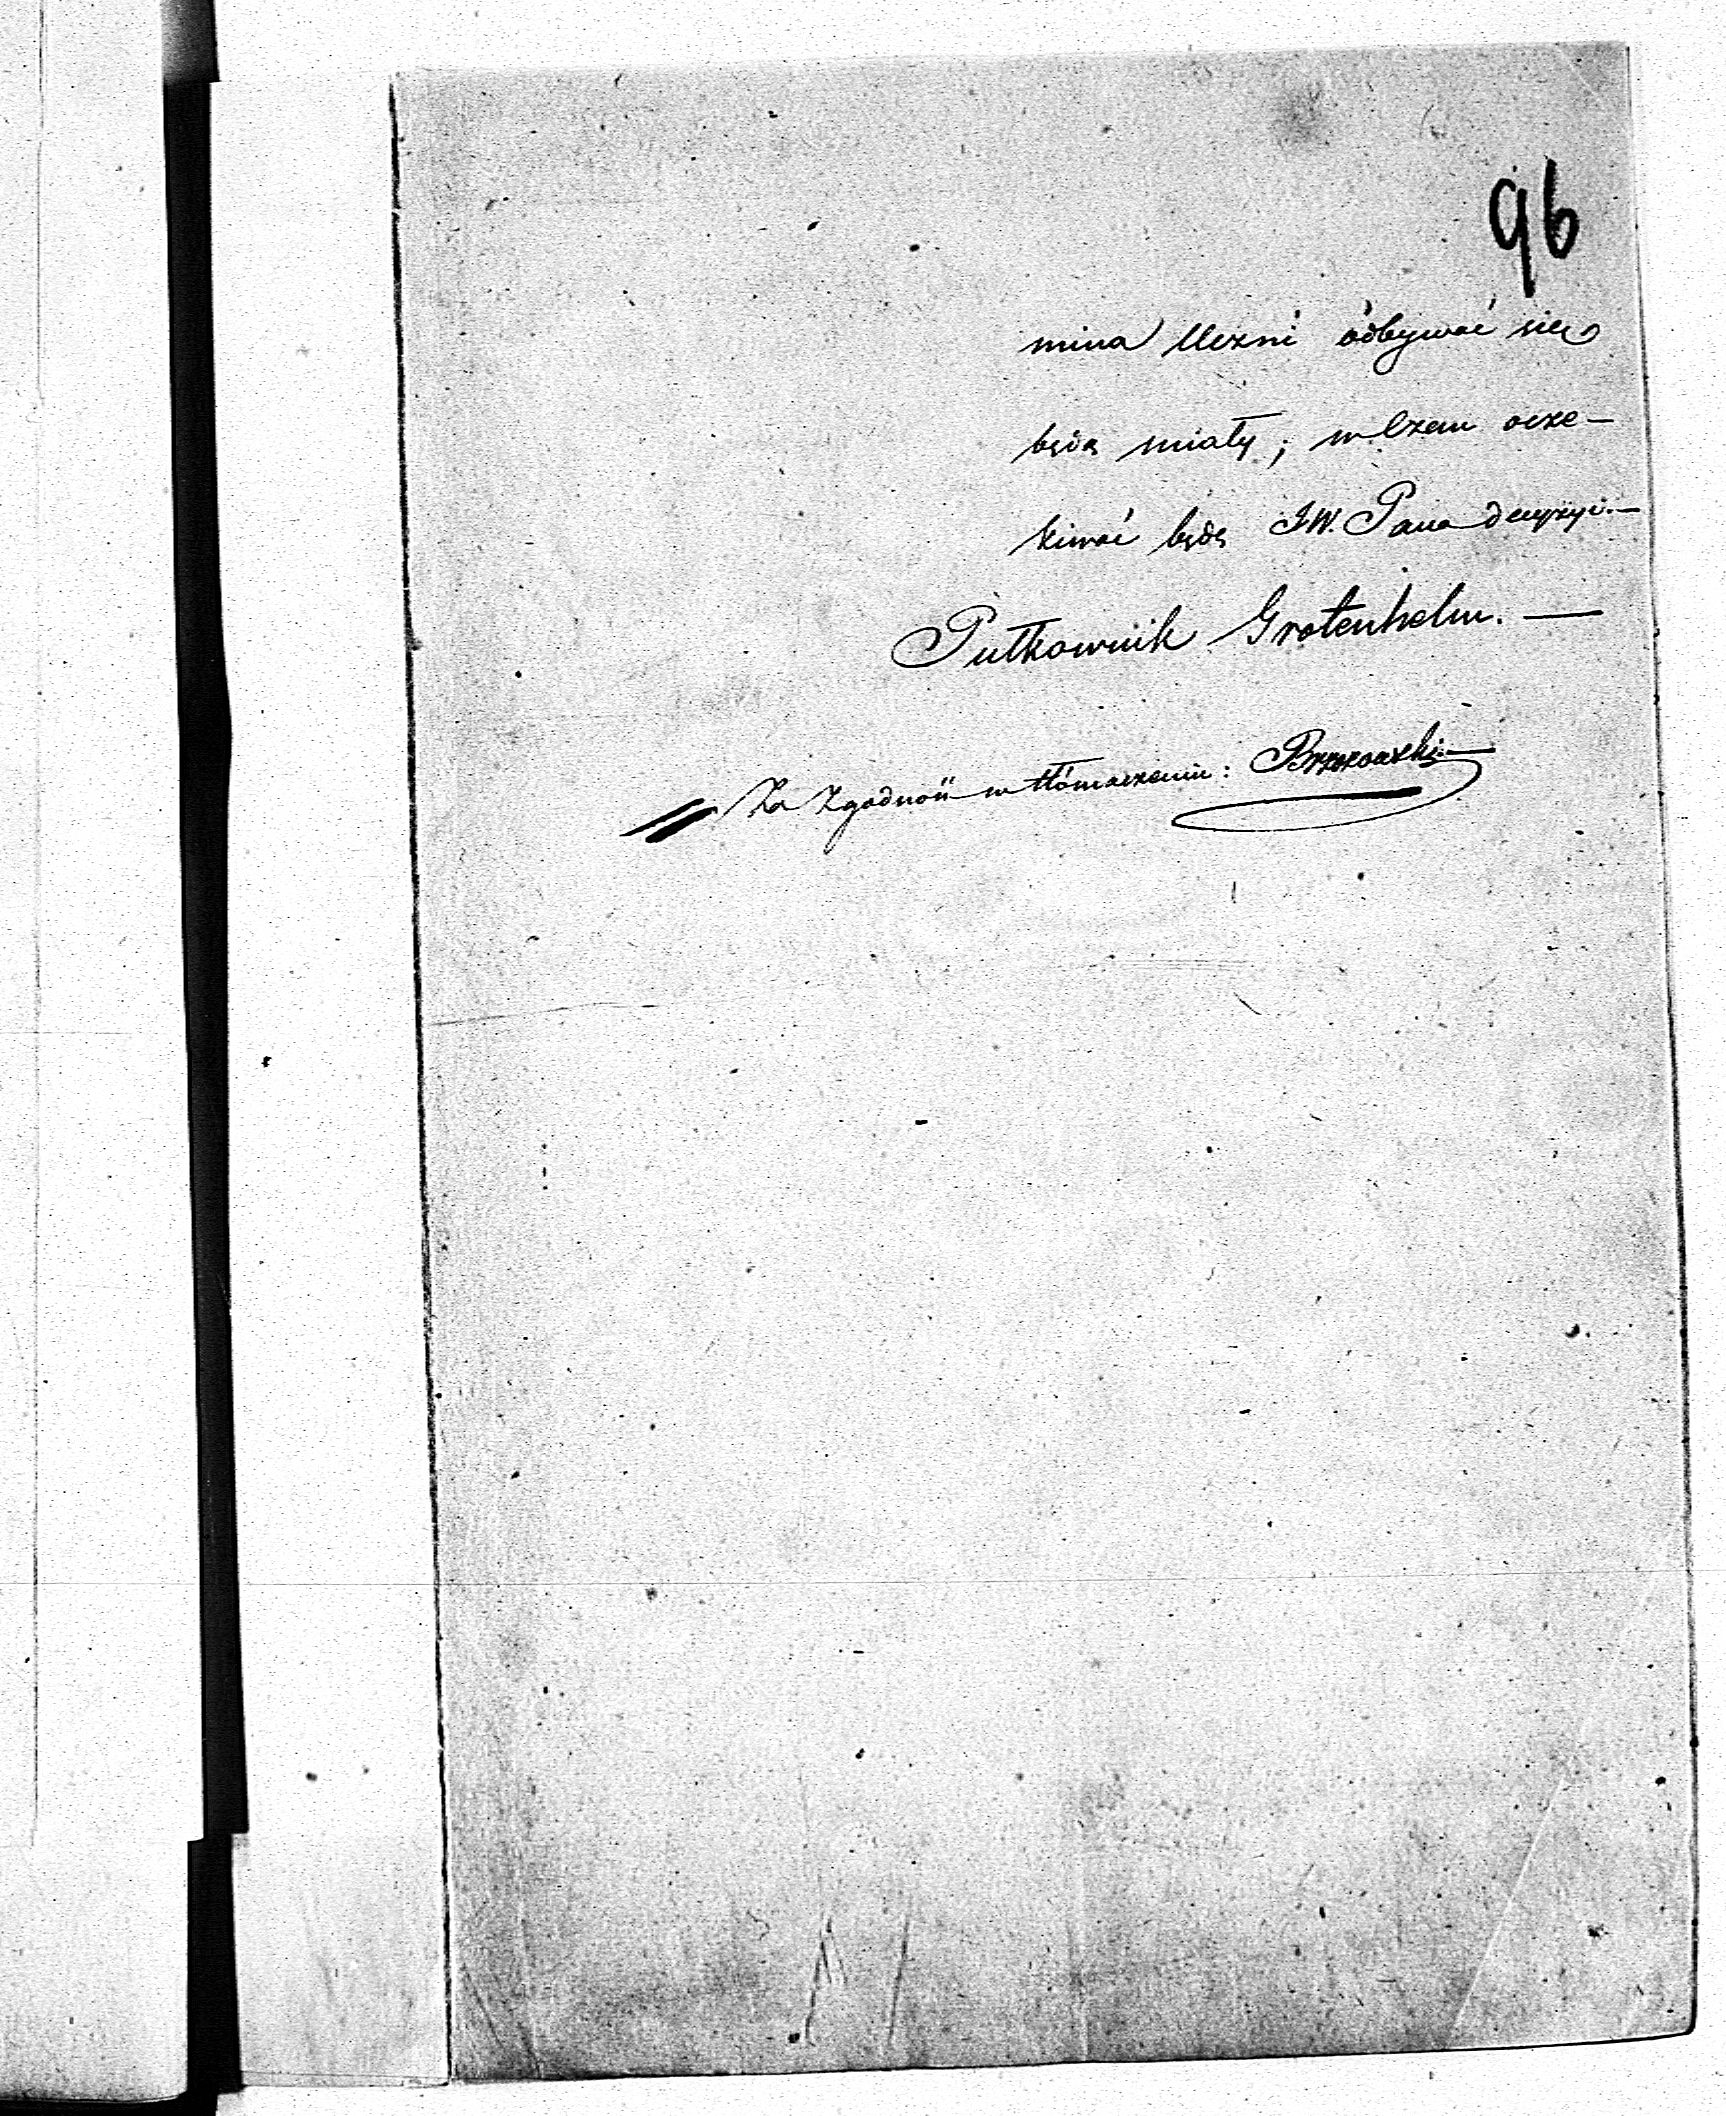 96
mina Uczni odbywać się
będą miały; w czem ocze-
kiwać będę JW. Pana decyzyi.—
Pułkownik Grotenhelm. —
Za zgodność w tłómaczeniu: Brzozowski.—